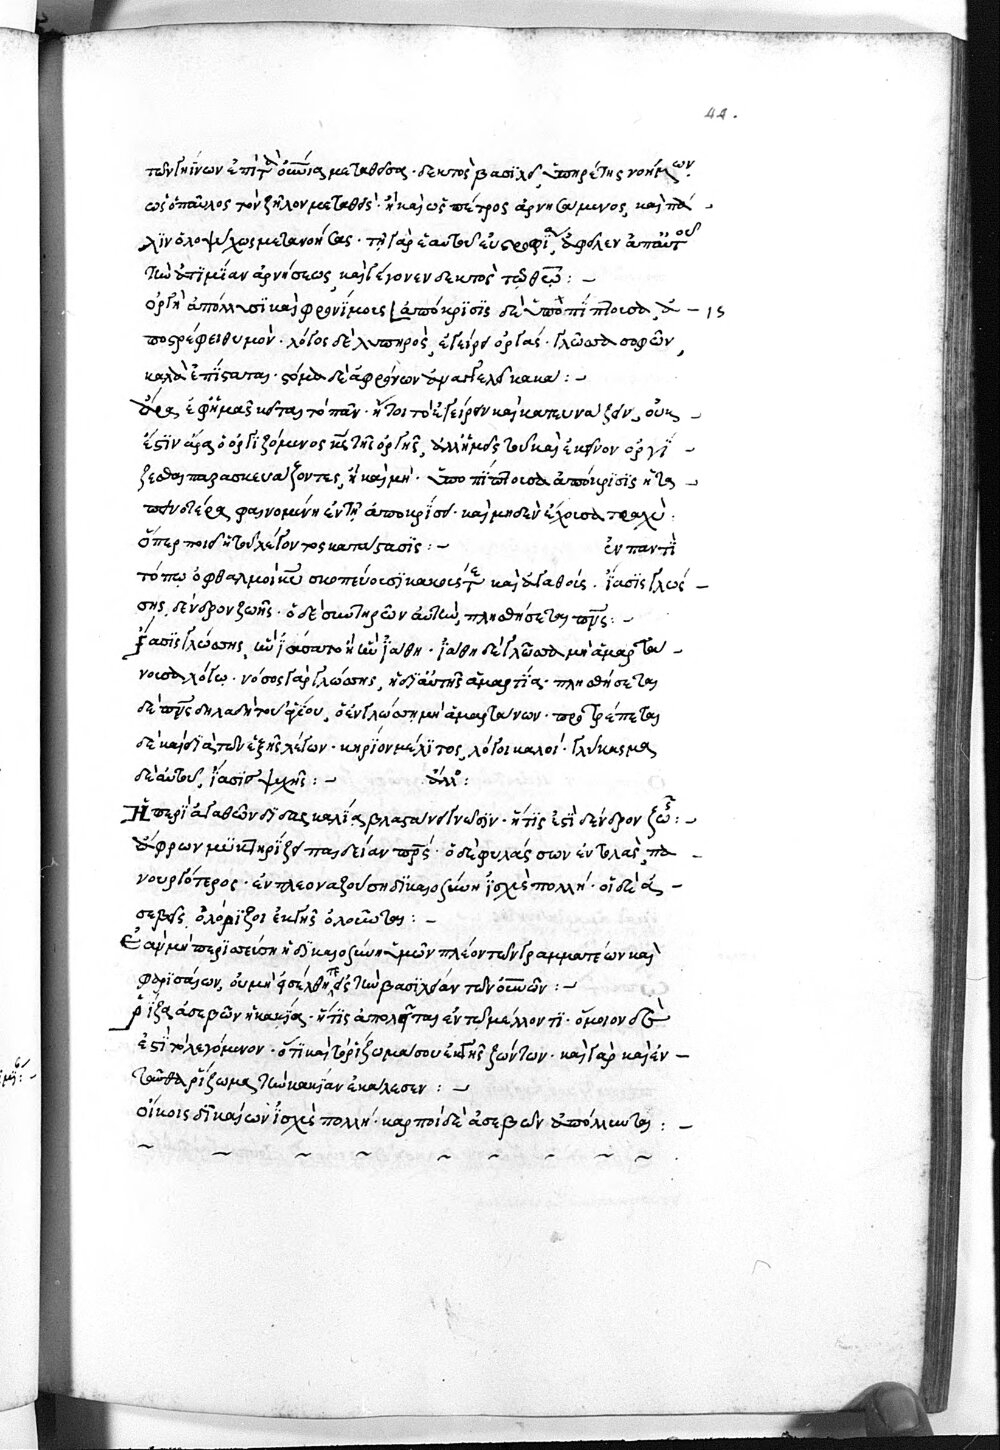 44.
τῶν γηΐνων ἐπὶ τὰ οὐράνια μεταθεὶς· δεκτὸς βασιλεῖ, ὑπηρέτης νοήμων
ὡς ὁ παῦλος τὸν ζῆλον μεταθείς· ἢ καὶ ὡς πέτρος ἀρνησάμενος, καὶ πά
λιν ὁλοψύχως μετανοήσας· τῇ γὰρ ἑαυτοῦ εὐστροφίᾳ, ἀφεῖλεν ἀπ' αὐτοῦ
τὴν ἀτιμίαν ἀρνήσεως, καὶ γέγονεν δεκτὸς τῷ θεῷ :
ὀργὴ ἀπόλλυσι καὶ φρονίμους ἀπόκρισις δὲ ὑποπίπτουσα, ἀ 15
ποστρέφει θυμόν· λόγος δὲ λυπηρὸς, ἐγείρει ὀργάς· γλῶσσα σοφῶν,
καλὰ ἐπίσταται· στόμα δὲ ἀφρόνων ἀναγγελεῖ κακά :
ἐφ' ἡμᾶς κεῖται τὸ πᾶν· ἤτοι τὸ ἐγείρειν καὶ κατευνάζειν, οὐκ
ἔστιν ἄρα ὁ ὀργιζόμενος τῆς ὀργῆς, ἀλλ' ἡμεῖς καὶ ἐκεῖνον ὀργί
ζεσθαι παρασκευάζοντες, ἢ καὶ μή· ὑποπίπτουσα ἀπόκρισις ἡ τα
πεινοτέρα φαινομένη ἐν τῇ ἀποκρίσει· καὶ μηδὲν ἔχουσα τραχύ·
ὅπερ ποιεῖ ἡ τοῦ λέγοντος κατάστασις : ἐν παντὶ
τόπῳ ὀφθαλμοὶ κυρίου σκοπεύουσι κακούς τε καὶ ἀγαθούς. ἴασις γλώσ
σης, δένδρον ζωῆς· ὁ δὲ συντηρῶν αὐτὴν, πλησθήσεται πνεύματος :
ἴασις γλώσσης, ἣν ἰάσατο ἢ ἣν ἰάθη· ἰάθη δὲ γλῶσσα μὴ ἁμαρτά
νουσα λόγῳ· νόσος γὰρ γλώσσης, ἡ δι' αὐτῆς ἁμαρτία· πλησθήσεται
δὲ πνεύματος δηλαδὴ τοῦ ἁγίου, ὁ ἐν γλώσσῃ μὴ ἁμαρτάνων· προτρέπεται
δὲ καὶ διὰ τῶν ἑξῆς λέγων· κηρίον μέλιτος, λόγοι καλοί· γλύκασμα
δὲ αὐτοῦ, ἴασις ψυχῆς : ἄλλο :
Ἡ περὶ ἀγαθῶν διδασκαλία βλαστάνει σύνεσιν· ἥτις ἐστὶ δένδρον ζωῆς :
ἄφρων μυκτηρίζει παιδείαν πατρός· ὁ δὲ φυλάσσων ἐντολὰς, πα
νουργότερος· ἐν πλεοναζούσῃ δικαιοσύνῃ ἰσχὺς πολλή· οἱ δὲ ἀ
σεβεῖς, ὁλόριζοι ἐκ γῆς ὀλοῦνται :
Ἐὰν μὴ περισσεύσῃ ἡ δικαιοσύνη ὑμῶν πλέον τῶν γραμματέων καὶ
φαρισαίων, οὐ μὴ εἰσέλθητε εἰς τὴν βασιλείαν τῶν οὐρανῶν :
ῥίζα ἀσεβῶν ἡ κακία· ἥτις ἀπολεῖται ἐν τῷ μέλλοντι· ὅμοιον δὲ
ἐστὶ τὸ λεγόμενον· ὅτι καὶ τὸ ῥίζωμά σου ἐκ γῆς ζώντων· καὶ γὰρ καὶ ἐν
ταῦθα ῥίζωμα τὴν κακίαν ἐκάλεσεν :
οἴκοις δικαίων ἰσχὺς πολλή· καρποὶ δὲ ἀσεβῶν ἀπόλλυνται :